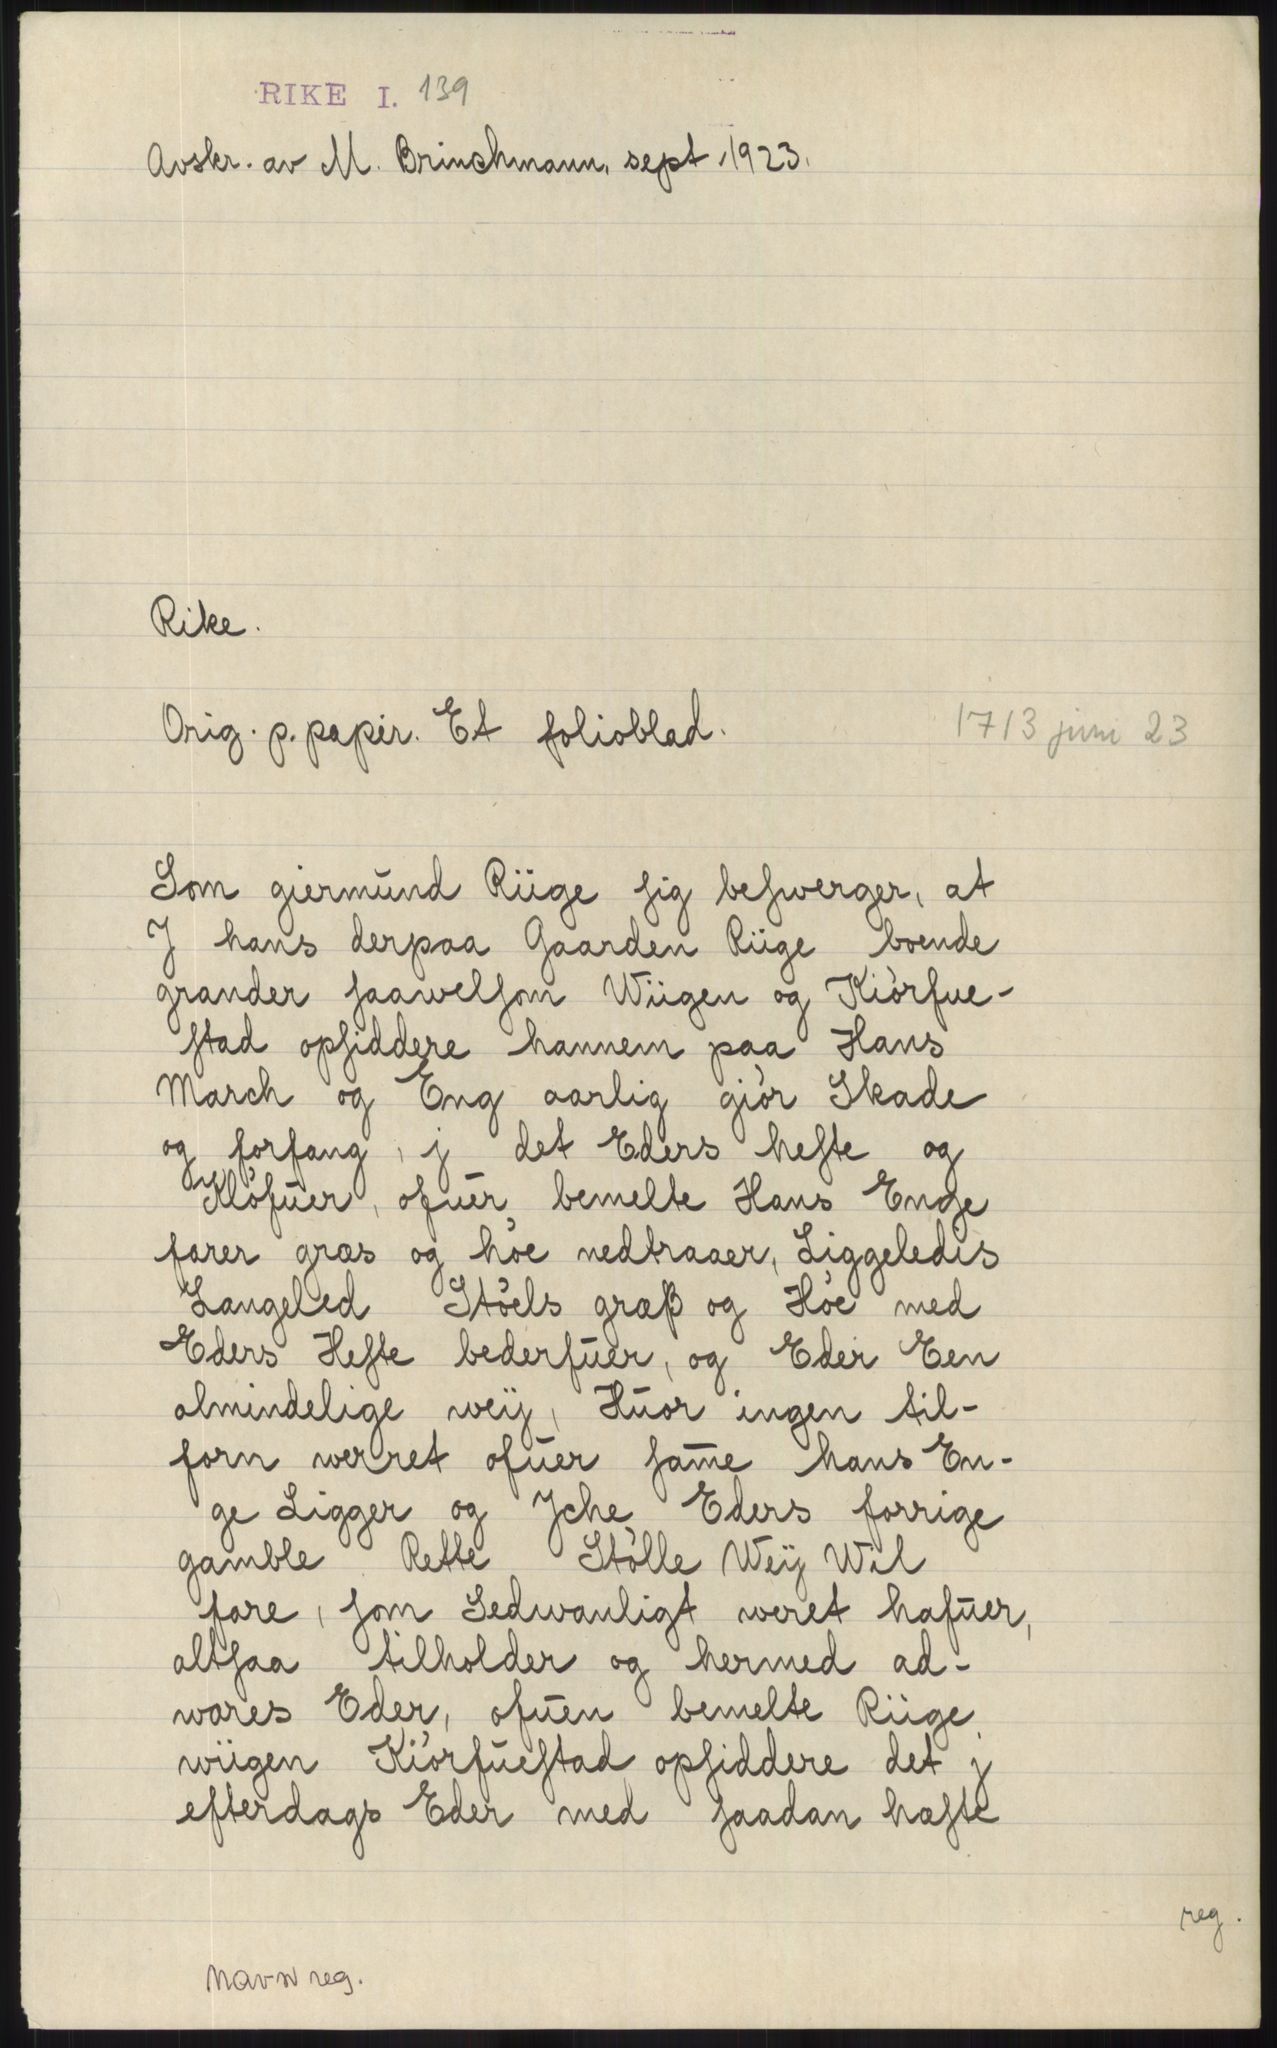 RIKE I. 139
Avskr. av M. Brinchmann, sept 1923.
Rike.
Orig. p. papir. Et folioblad.
1713 juni 23
Som giermūnd Riige sig beswerger, at
J hans derpaa Gaarden Riige boende
grander saawelsom Wiigen og Kiórfue-
stad opsiddere hannem paa Hans
March og Eng aarlig giór Skade
og forfang, j det Eders heste og
Klófūer, ofūer bemelte Hans Enge
farer græs og hóe nedtraaer, Liggeledis
Langeled Stóels græß og Hóe med
Eders Heste bederfūer, og Eder Een
almindelige weÿ, Hūor ingen til-
forn werret ofūer sam̄e hans En-
ge Ligger og Jche Eders forrige
gamble Rette Stólle Weÿ Wil
fare, som Sedwanligt weret hafūer,
altsaa tilholder og hermed ad-
wares Eder, ofūen bemelte Riige,
wiigen Kiórfūestad opsiddere det j
efterdags Eder med saadan hæste
reg.
Navn reg.